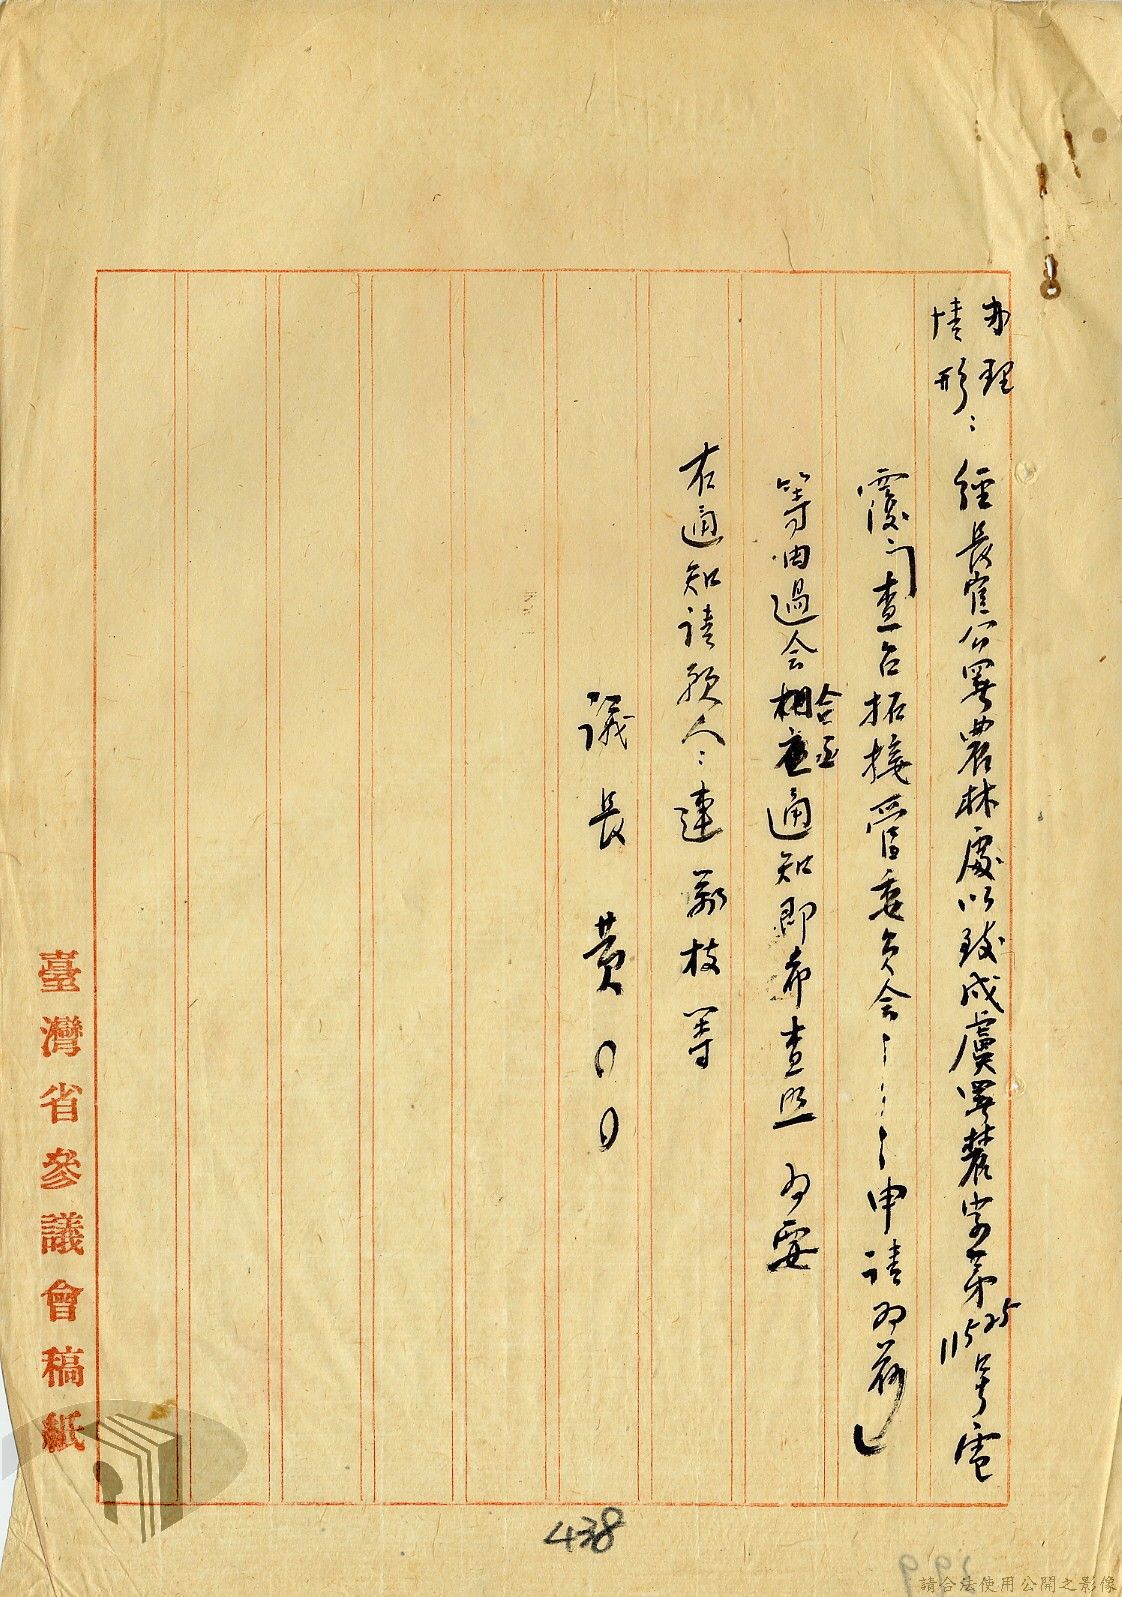 办理
情形：
經長官公署農林處以致戌虞署農字第11525号電
覆「查台拓接管委員会………申請為荷」
等由過会相應合亟通知即希查照 為要
右通知請願人：連新枝等
議長 黄〇〇
臺灣省參議會稿紙
438
請合法使用公開之影像